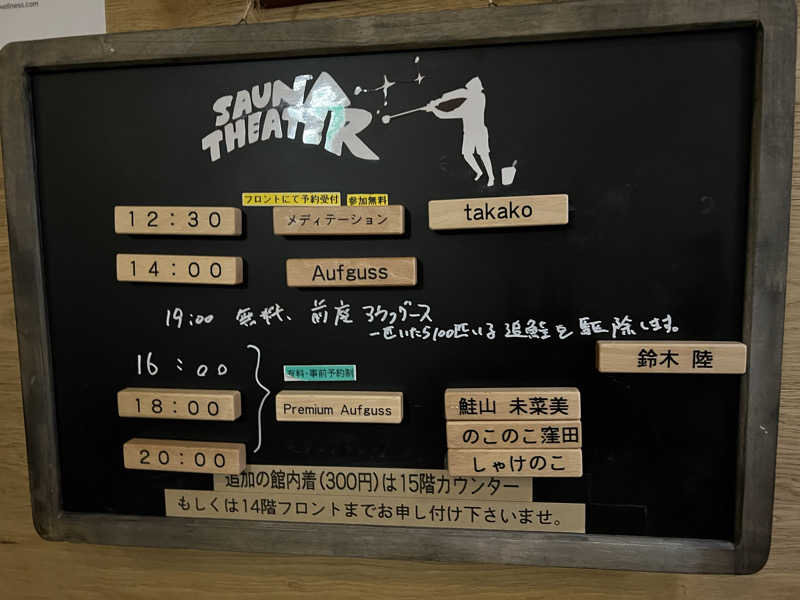 ellness.com
SAUNA
THEATER
フロントにて予約受付 参加無料
12:30 メディテーション takako
14:00 Aufguss
19:00 無料、前座アウフグース
一匹いたら100匹いる追鮭を駆除します。
鈴木 陸
16:00
有料・事前予約制
18:00 Premium Aufguss 鮭山 未菜美
のこのこ窪田
20:00 しゃけのこ
追加の館内着(300円)は15階カウンター
もしくは14階フロントまでお申し付け下さいませ。